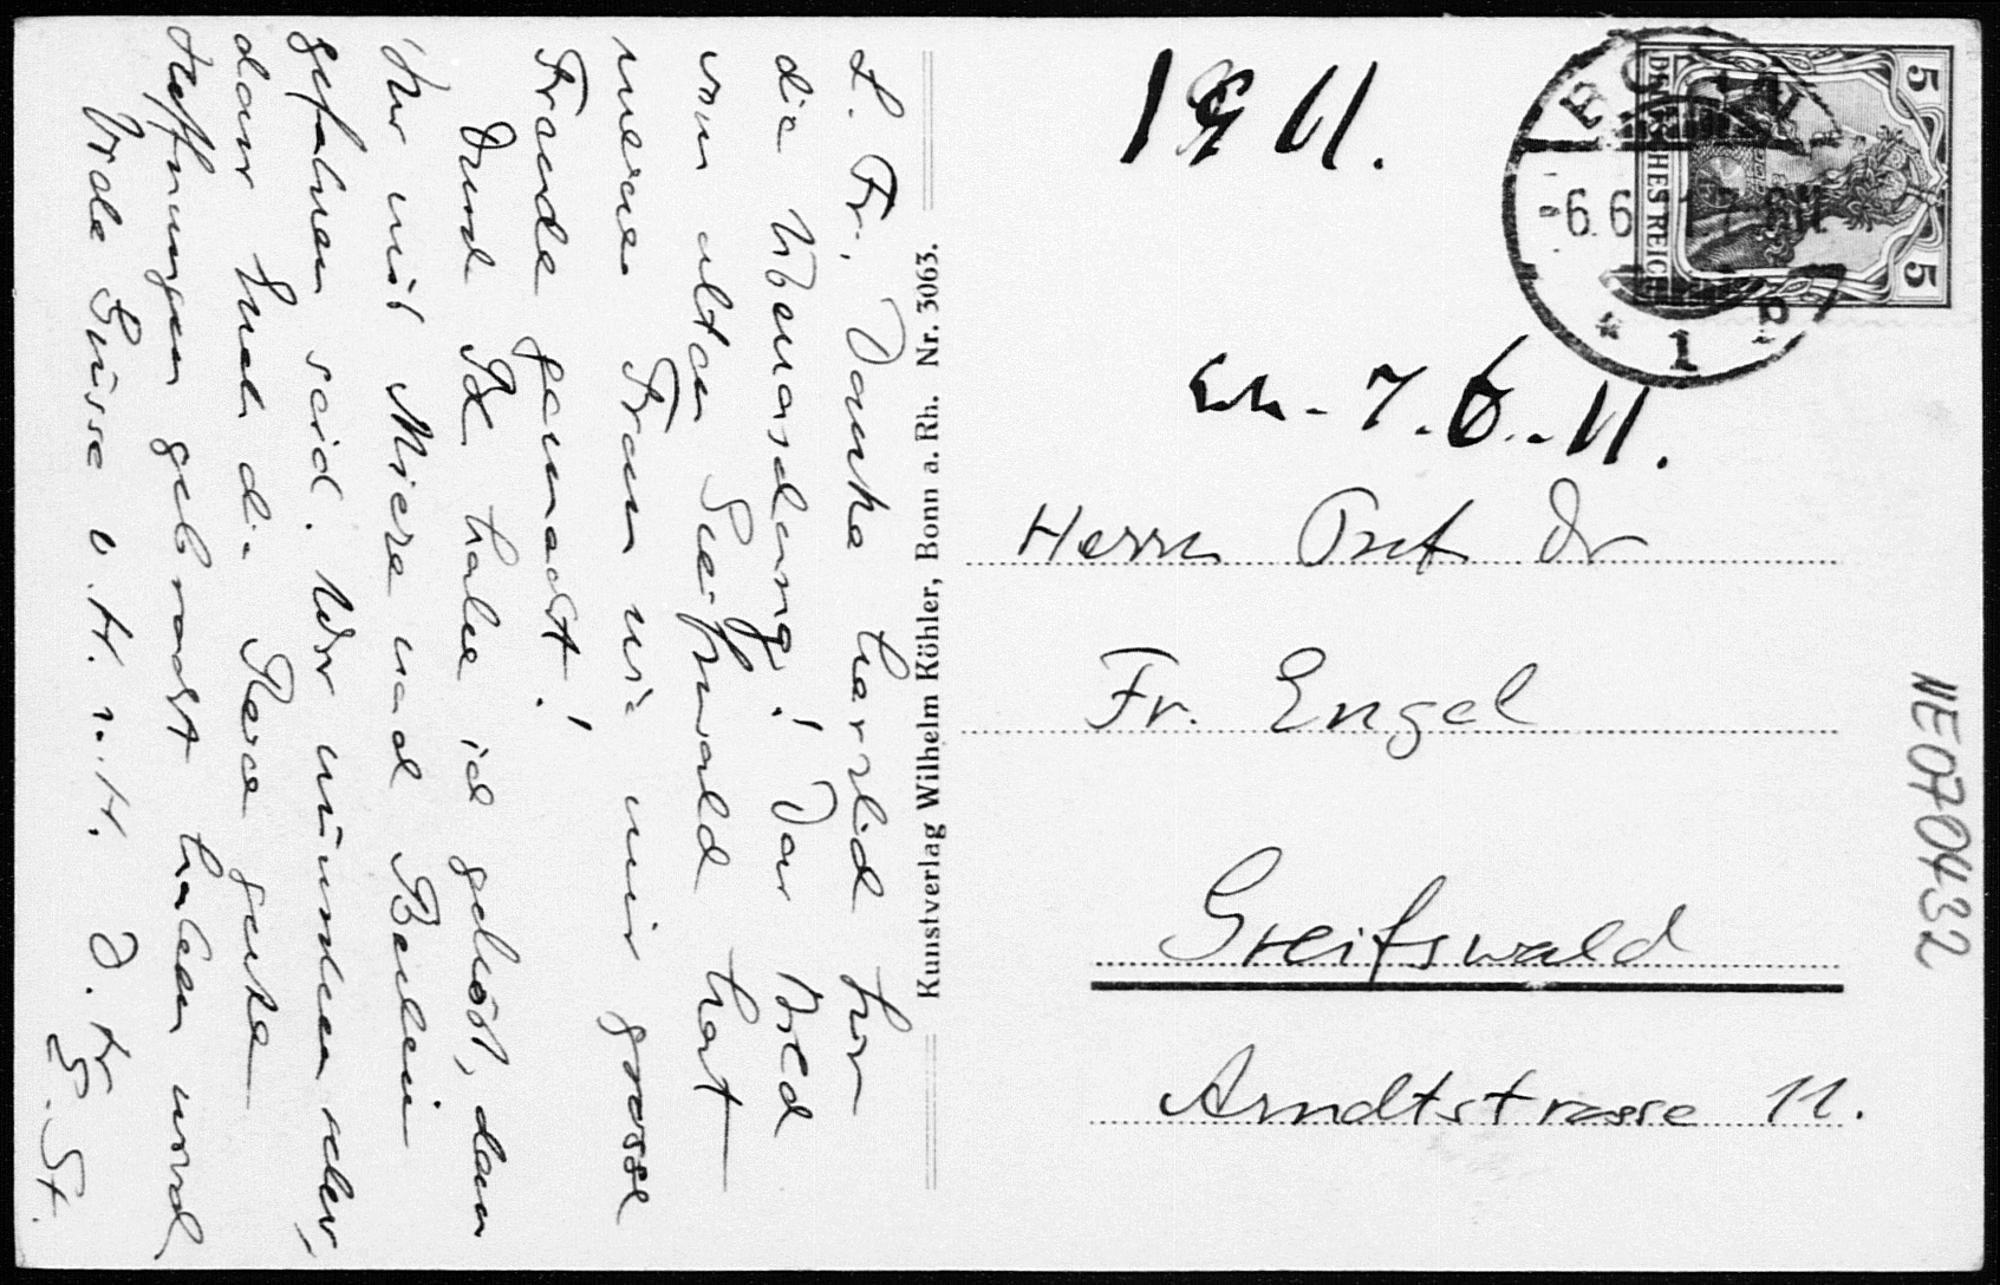 L. Fr., Danke herzlich für
die Übersendung! Das Bild
vom alten Greifswald hat
meiner Frau wie mir grosse
Freude gemacht!
Durch habe ich gehört, dass
Ihr mit Miere nach Berlin
gefahren seid. Wir wünschen sehr,
dass Euch die Reise gute
Hoffnungen gebracht haben wird
Viele Grüsse v. H. z. H. D.
St.
Kunstverlag Wilhelm Köhler, Bonn a. Rh. Nr. 3063.
1911.
DEUTSCHES REICH
5 5
BONN
6.6
* 1
7.6.11.
Herrn Prof Dr
Fr. Engel
Greifswald
Arndtstrasse 11.
NE070432